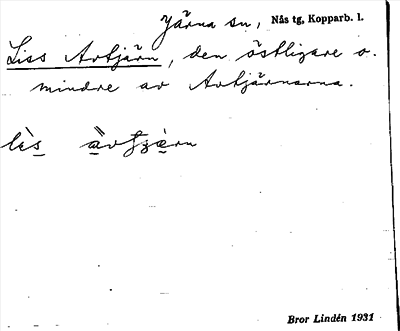 Järna sn, Nås tg, Kopparb. l.
Liss Avtjärn, den östligare o.
mindre av Avtjärnarna.
lès àvtjæ̀rn
Bror Lindén 1931